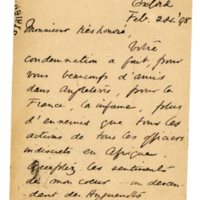 Oxford
Feb. 24. '98
Monsieur très honoré,
Votre
condemnation a fait, pour
vous beaucoup d'amis
dans Angleterre, pour la
France, la infame, plus
d'ennemis que tous les
actions de tous les officers
indiscrets en Afrique.
Acceptez les sentiments
de mon coeur – un descen-
dant de Huguenots